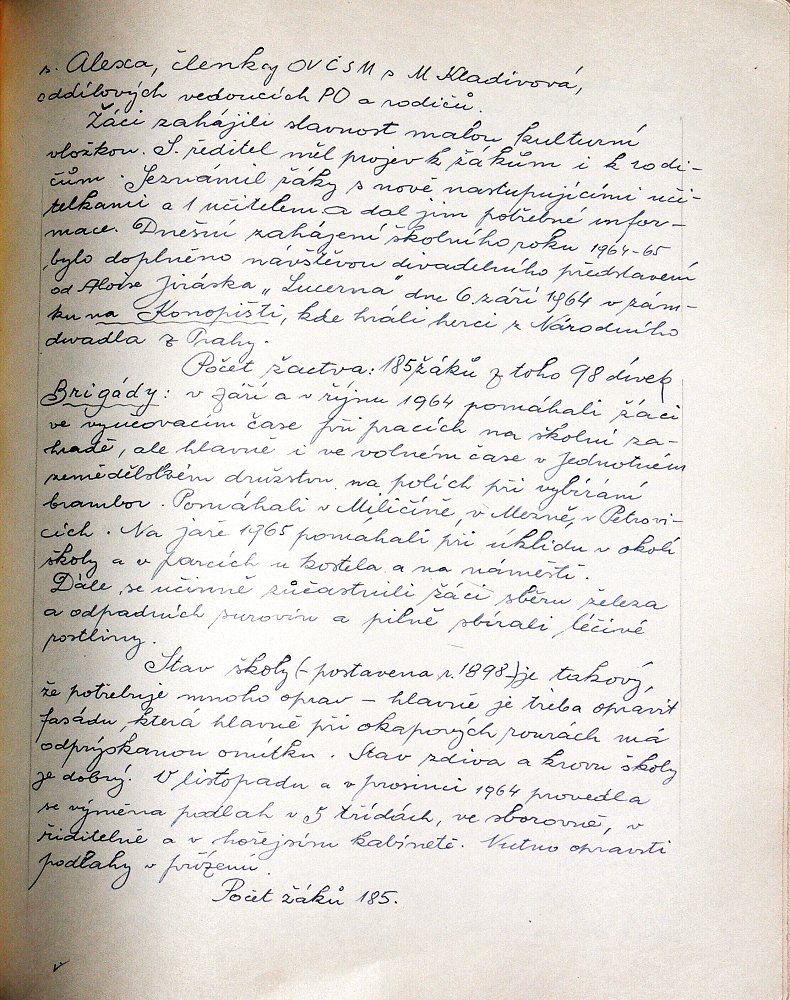 s. Alexa, členky OV ČSM s M Kladivová,
oddílových vedoucích PO a rodičů.
Žáci zahájili slavnost malou kulturní
vložkou. S. ředitel měl projev k žákům i k rodi-
čům. Seznámil žáky s nově nastupujícími uči-
telkami a 1 učitelem a dal jim potřebné infor-
mace. Dnešní zahájení školního roku 1964-65
bylo doplněno návštěvou divadelního představení
od Aloise Jiráska „Lucerna" dne 6. září 1964 v zám-
ku na Konopišti, kde hráli herci z Národního
divadla z Prahy.
Počet žactva: 185 žáků z toho 98 dívek
Brigády: v září a v říjnu 1964 pomáhali žáci
ve vyučovacím čase při pracích na školní za-
hradě, ale hlavně i ve volném čase v Jednotném
zemědělském družstvu na polích při vybírání
brambor. Pomáhali v Miličíně, v Mezně, v Petrovi-
cích. Na jaře 1965 pomáhali při úklidu v okolí
školy a v parcích u kostela a na náměstí.
Dále se účinně zúčastnili žáci sběru železa
a odpadních surovin a pilně sbírali léčivé
rostliny.
Stav školy (- postavena r. 1898 -) je takový,
že potřebuje mnoho oprav - hlavně je třeba opravit
fasádu, která hlavně při okapových rourách má
odprýskanou omítku. Stav zdiva a krovu školy
je dobrý. V listopadu a v prosinci 1964 provedla
se výměna podlah v 5 třídách, ve sborovně, v
řiditelně a v hořejsím kabinetě. Nutno opraviti
podlahy v přízemí.
Počet žáků 185.